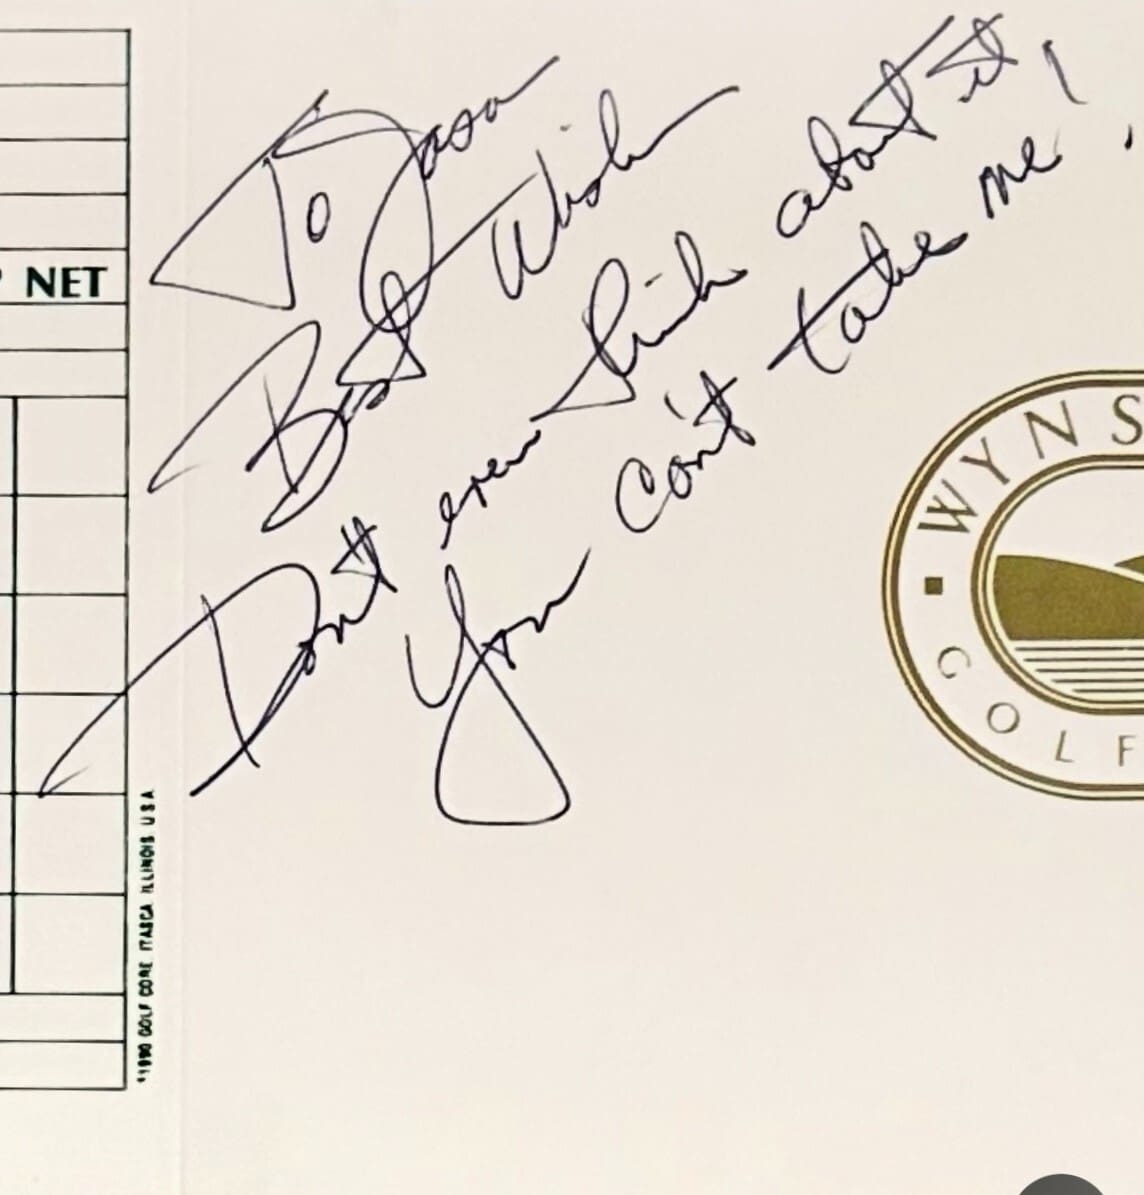 To Jason
Best Wishes
Don't even think about it,
You can't take me!
NET
WYNS
GOLF
*1990 GOLF CORE ITASCA ILLINOIS USA